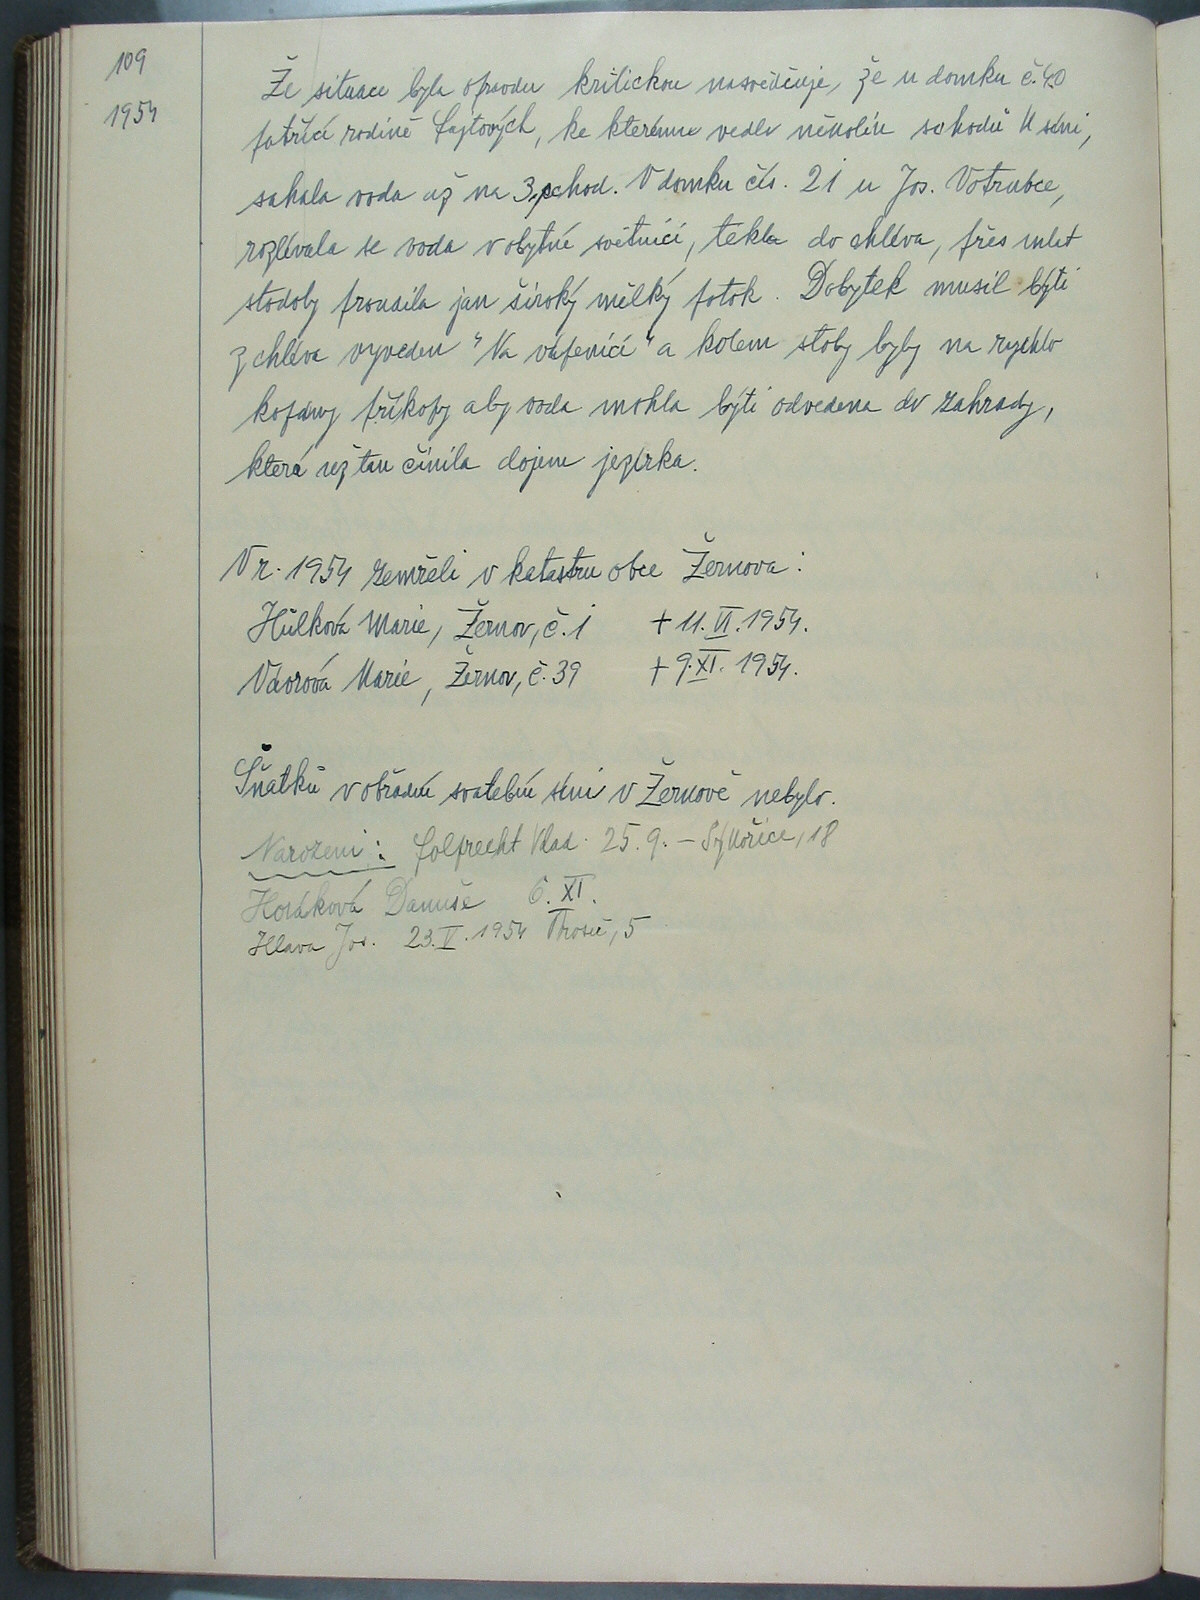 109
1954
Že situace byla opravdu kritickou nasvědčuje, že u domku č. 40
patřící rodině Fajtových, ke kterému vedlo několik schodů k síni,
sahala voda až na 3. schod. V domku čís. 21 u Jos. Votrubce,
rozlévala se voda v obytné světnici, tekla do chléva, přes mlat
stodoly proudila jak široký mělký potok. Dobytek musil býti
z chléva vyveden "Na vápenici" a kolem byly na rychlo
kopány příkopy aby voda mohla býti odvedena do zahrady,
která už tak činila dojem jezírka.
V r. 1954 zemřeli v katastru obce Žernova:
Hůlková Marie, Žernov, č. 1 + 11. VI. 1954.
Vávrová Marie, Žernov, č. 39 + 9. XI. 1954.
Sňatků v obřadní svatební síni v Žernově nebylo.
Narozeni: Folprecht Vlad. 25. 9. – 18
Horáková Danuše 6. XI.
Hlava Jos. 23. V. 1954 5